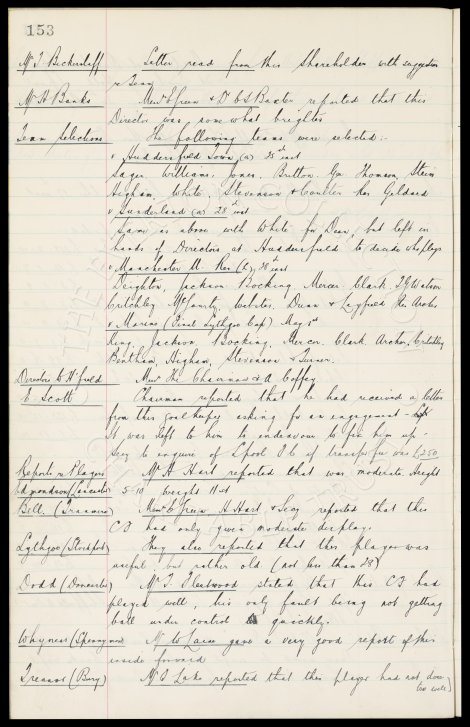 153
Mr J. Bickerstaff Letter read from this Shareholder with suggestion
re Team
Mr H Banks Messrs E Green & D. C. S. Baxter reported that this
Director was some what brighter
Team Selections The following teams were selected:-
v Huddersfield Town (a) 25th inst
Sager. Williams. Jones. Britton. Gee. Thomson. Stein
Higham. White. Stevenson & Coulter Res Geldard
v Sunderland (a) 28th inst
Same as above with White for Dean, but left in
hands of Directors at Huddersfield to decide who plays
v Manchester U. Res (h) 28th inst
Deighton, Jackson Bocking. Mercer. Clark. T G Watson
Critchley McGourty. Webster. Dunn & Leyfield Res Archer
v Marine (Final Lythgoe Cup) May 1st
King. Jackson. Bocking. Mercer. Clark. Archer. Critchley
Bentham, Higham, Stevenson & Turner.
Directors to H'field Messrs The Chairman & A Coffey
E. Scott Chairman reported that he had received a letter
from this goal keeper asking for an engagement
It was left to him to endeavour to fix him up
Secy to enquire of Lpool if transfer fee was £250
Reports re Players Mr A Hart reported that was moderate. Height
Edmondson (Leicester) 5-10 weight 11 st
Bell. (Tranmere) Messrs E Green A Hart & Secy reported that this
C.F. had only given moderate display.
Lythgoe (Stockport) They also reported that this player was
useful, but rather old (not less than 28)
Dodd (Doncaster) Mr J. Fleetwood stated that this C.F. had
played well, his only fault being not getting
ball under control quickly.
Whyness (Spennymoor) Mr W Lowe gave a very good report of this
inside forward
Treanor (Bury) Mr J Lake reported that this player had not done
too well)